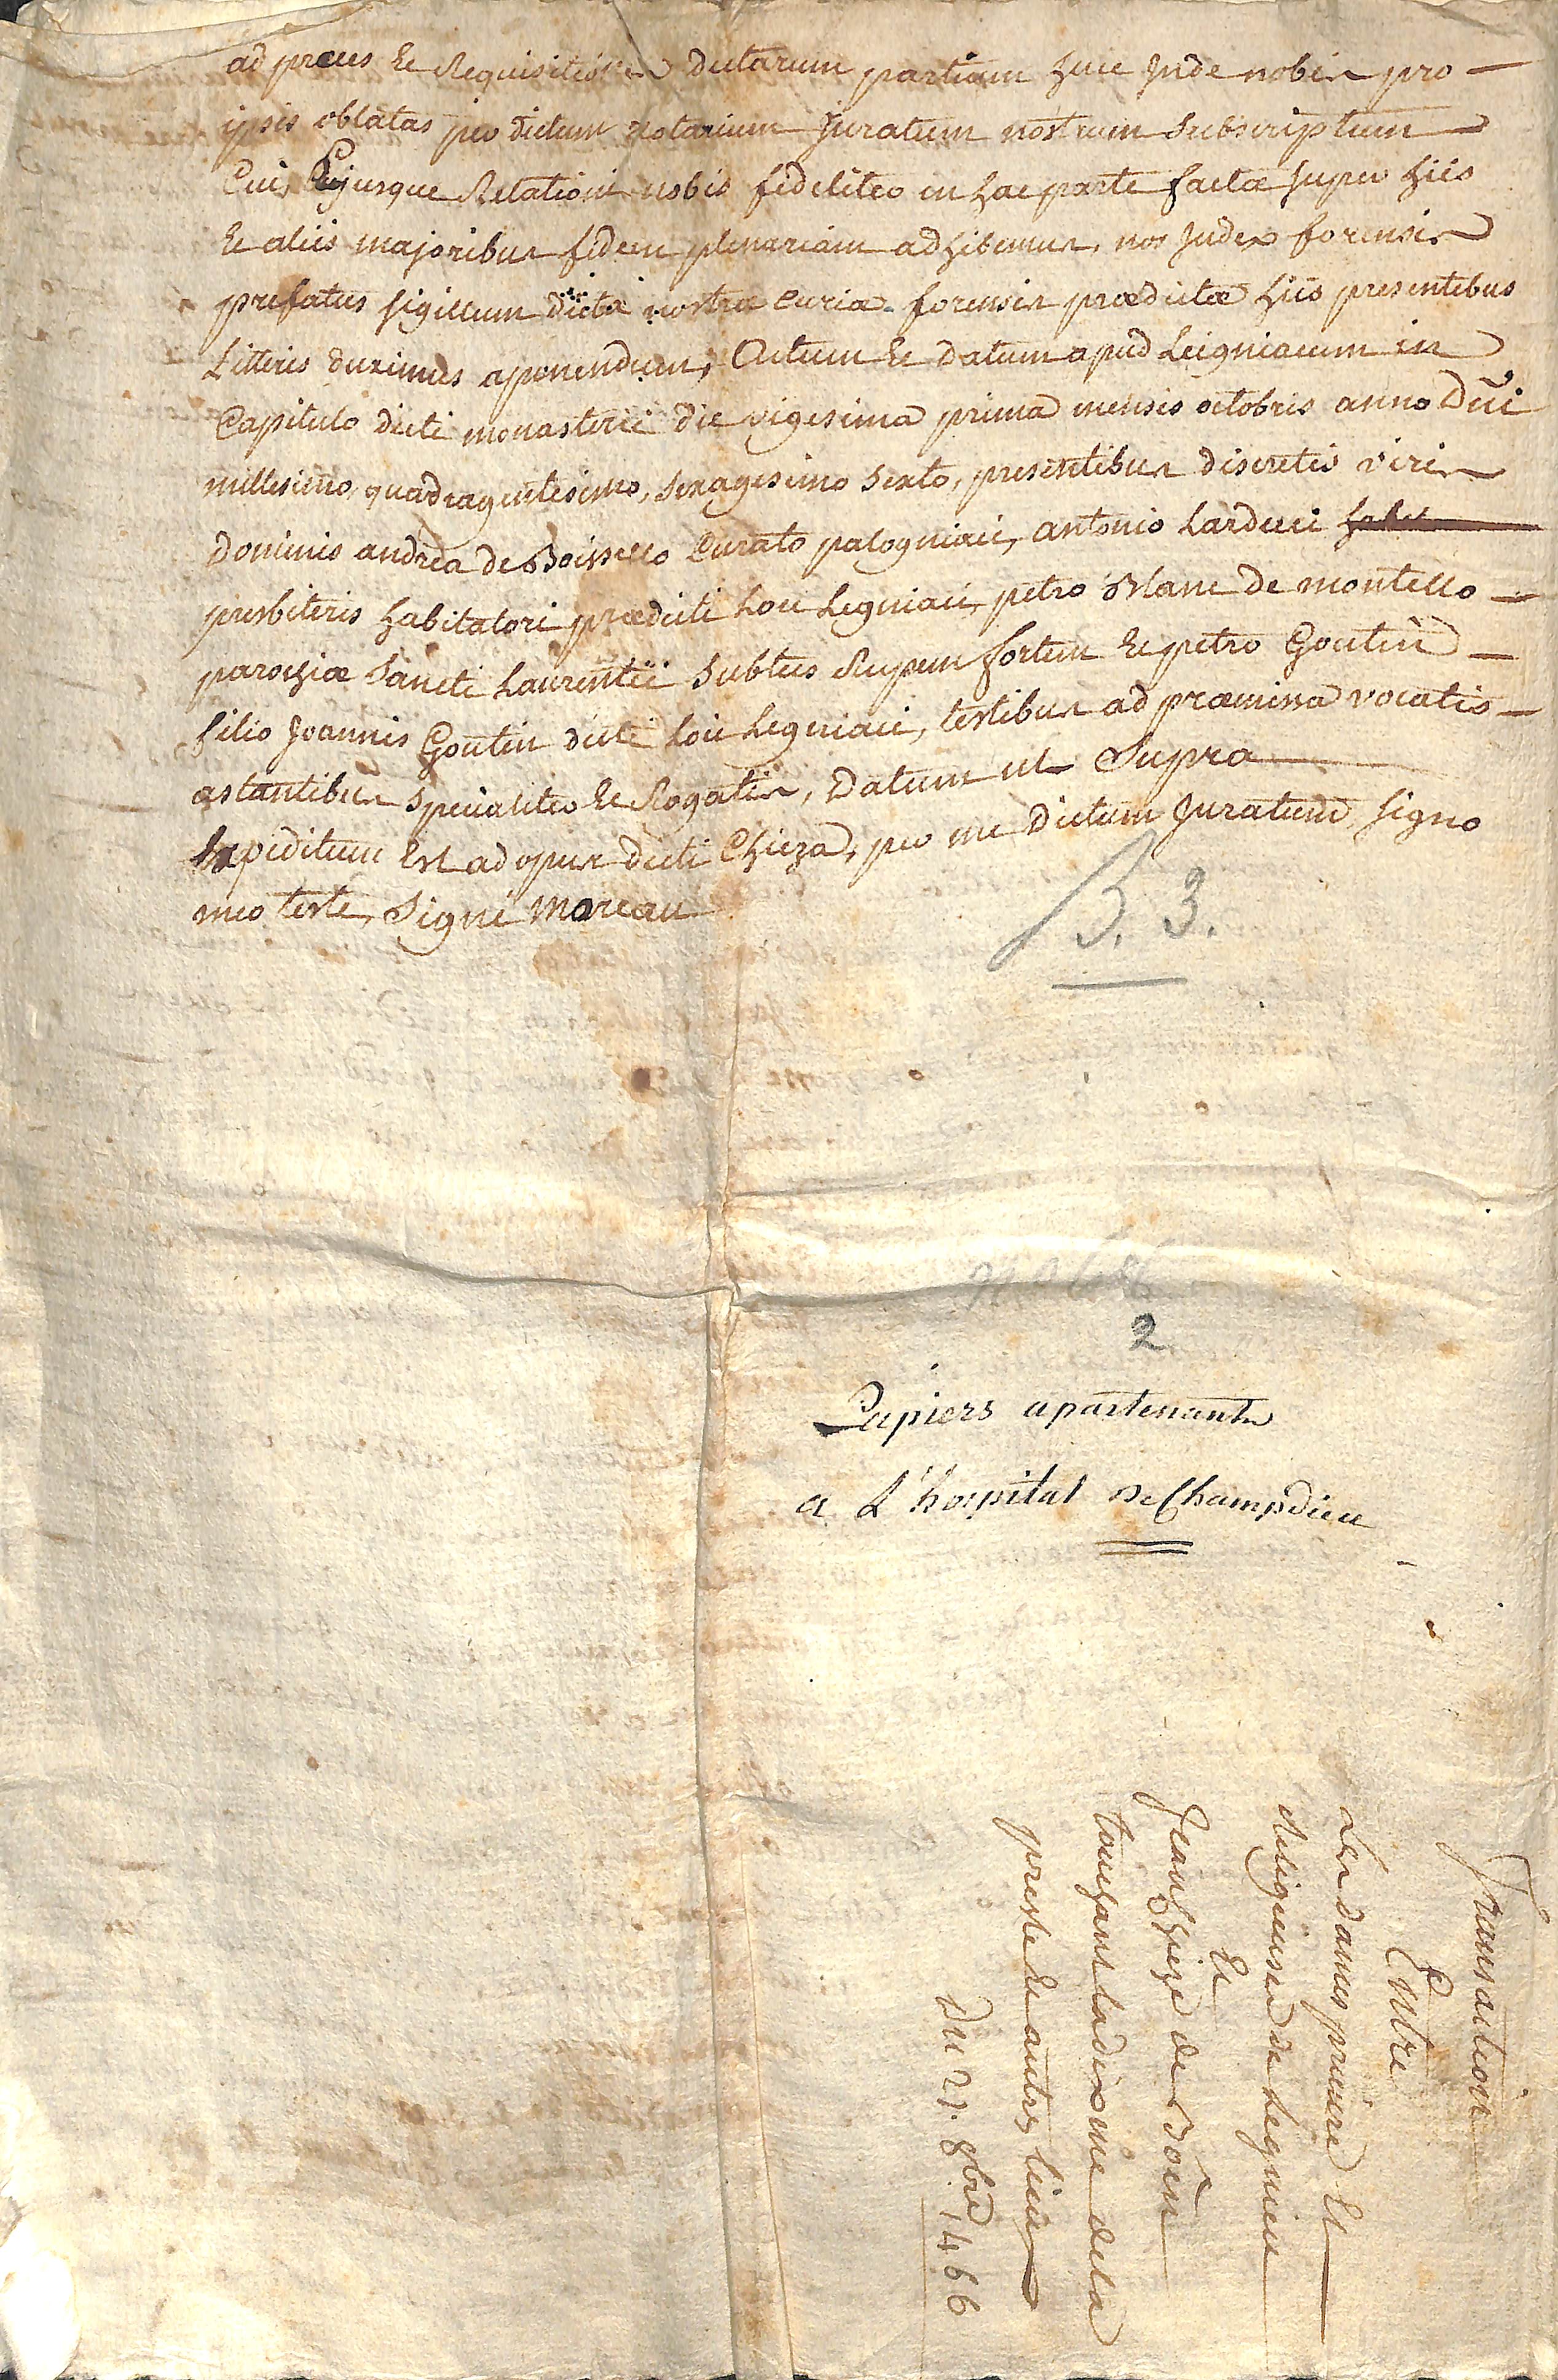 ad preces Et Requisitionem dictarum partium hinc Inde nobis pro
ipsis oblatas per dictum notarium Juratum nostrum subscriptum
Cui, Cujusque Relationi nobis fideliter in hac parte factæ super hiis
Et aliis majoribus fidem plenariam adhibemus, nos Judex forensis
prefatus sigillum dictæ nostræ Curiæ forensis prædictæ hiis presentibus
Litteris duximus aponendum, Actum Et datum apud Leigniacum in
Capitulo dicti monasterii die vigesima prima mensis octobris anno Dñi
millesimo, quadragentesimo, sexagesimo sexto, presentibus discretis viris
Dominis andrea de Boissello Curato palogniaci, antonio Larduci
presbiteris habitatori prædicti Loci Legniaci, petro Blanc de montello
parochiæ Sancti Laurentii subtus Rupem fortem Et petro Goutin
filio Joannis Goutin dicti Loci Legniaci, testibus ad præmissa vocatis
astantibus specialiter Et Rogatis, Datum ut Supra
Expeditum Est ad opus dicti Chieza, per me dictum Juratum signo
meo teste, Signé Moreau
B. 3.
2
Papiers apartenants
a L'hospital de Champdieu
Transaction
Entre
Les dames prieure Et
Religieuses de Legnieu
Et
Jean Chieze de Boën
touchant la dixme de la
preste Et autres lieux
Du 21. 8bre 1466